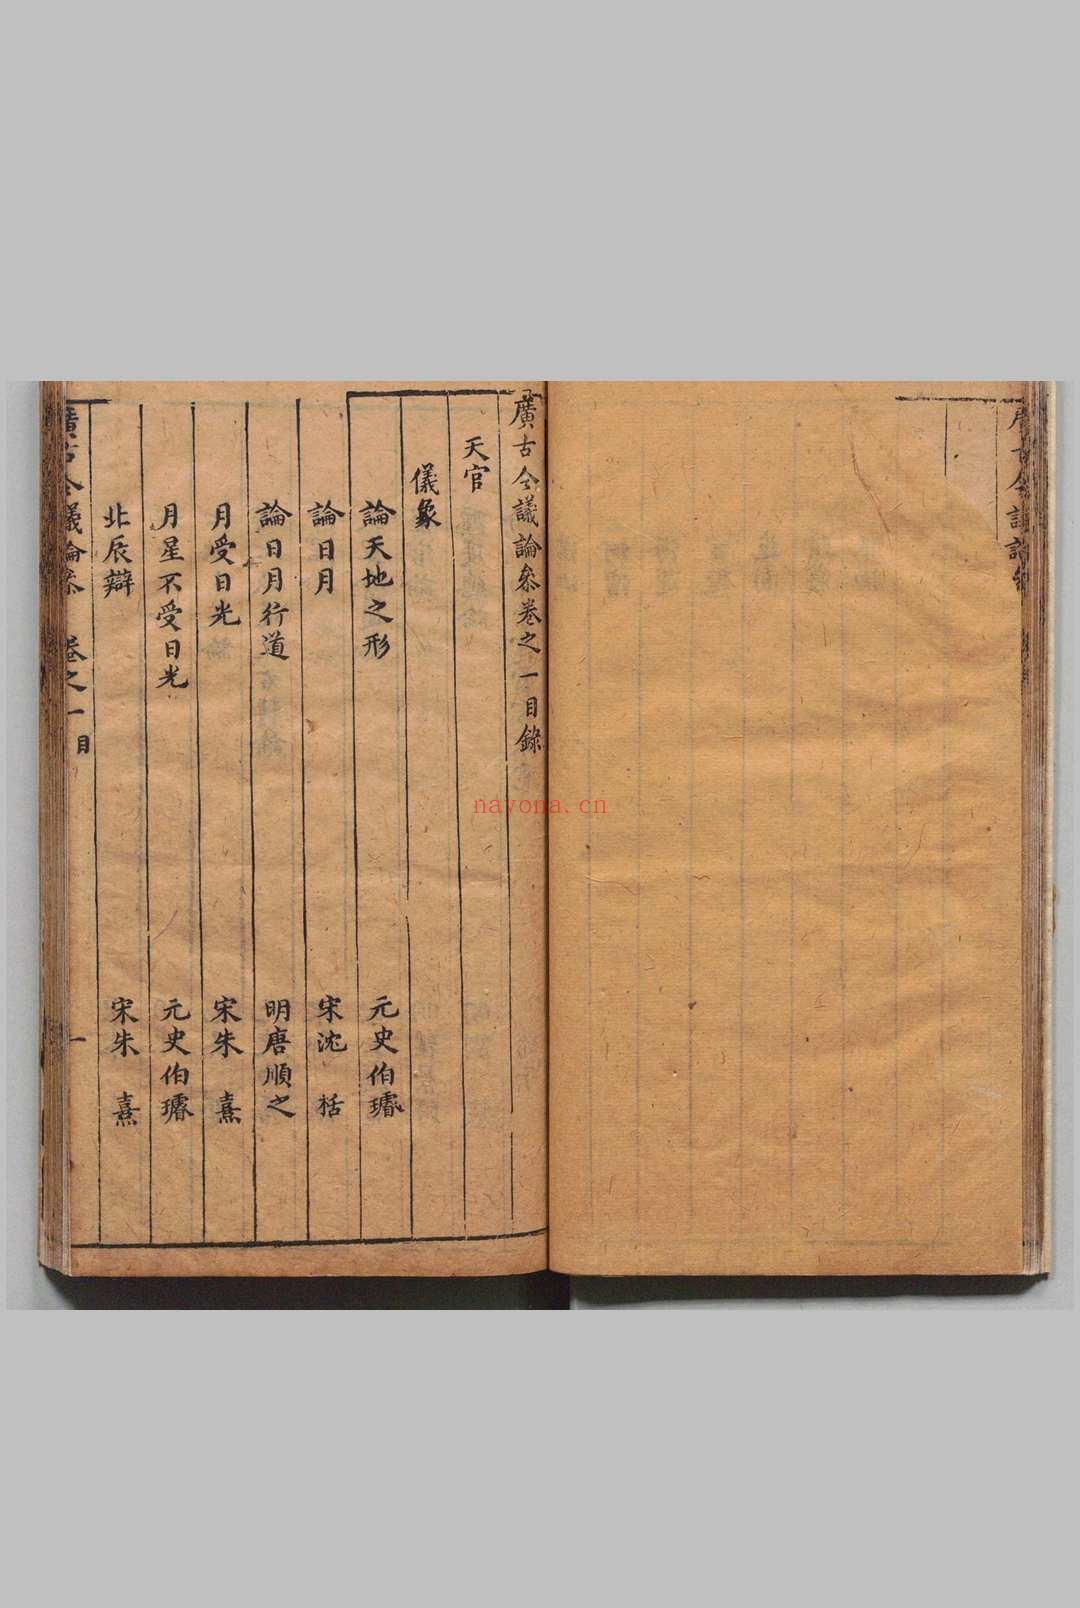 廣古今議論
廣古今議論叅卷之一目錄
天官
儀象
論天地之形 元史伯璿
論日月 宋沈括
論日月行道 明唐順之
月受日光 宋朱熹
月星不受日光 元史伯璿
北辰辯 宋朱熹
廣古今議論叅 卷之一目 一
nayona.cn